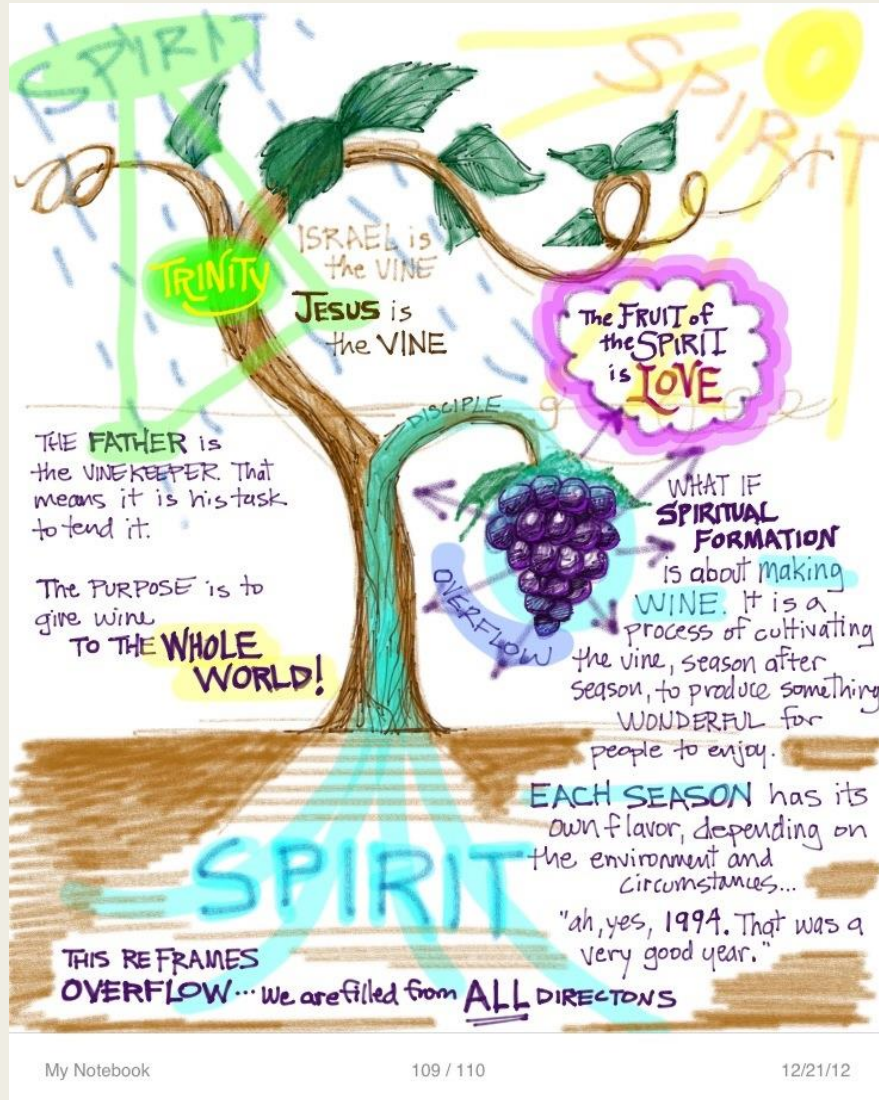 SPIRIT
SPIRIT
TRINITY
ISRAEL is
the VINE
JESUS is
the VINE
The FRUIT of
the SPIRIT
is LOVE
DISCIPLE
THE FATHER is
the VINEKEEPER. That
means it is his task
to tend it.
The PURPOSE is to
give wine
TO THE WHOLE
WORLD!
OVERFLOW
WHAT IF
SPIRITUAL
FORMATION
is about making
WINE. It is a
process of cultivating
the vine, season after
season, to produce something
WONDERFUL for
people to enjoy.
EACH SEASON has its
own flavor, depending on
the environment and
circumstances...
"ah, yes, 1994. That was a
very good year."
SPIRIT
THIS REFRAMES
OVERFLOW... We are filled from ALL DIRECTONS
My Notebook
109 / 110
12/21/12